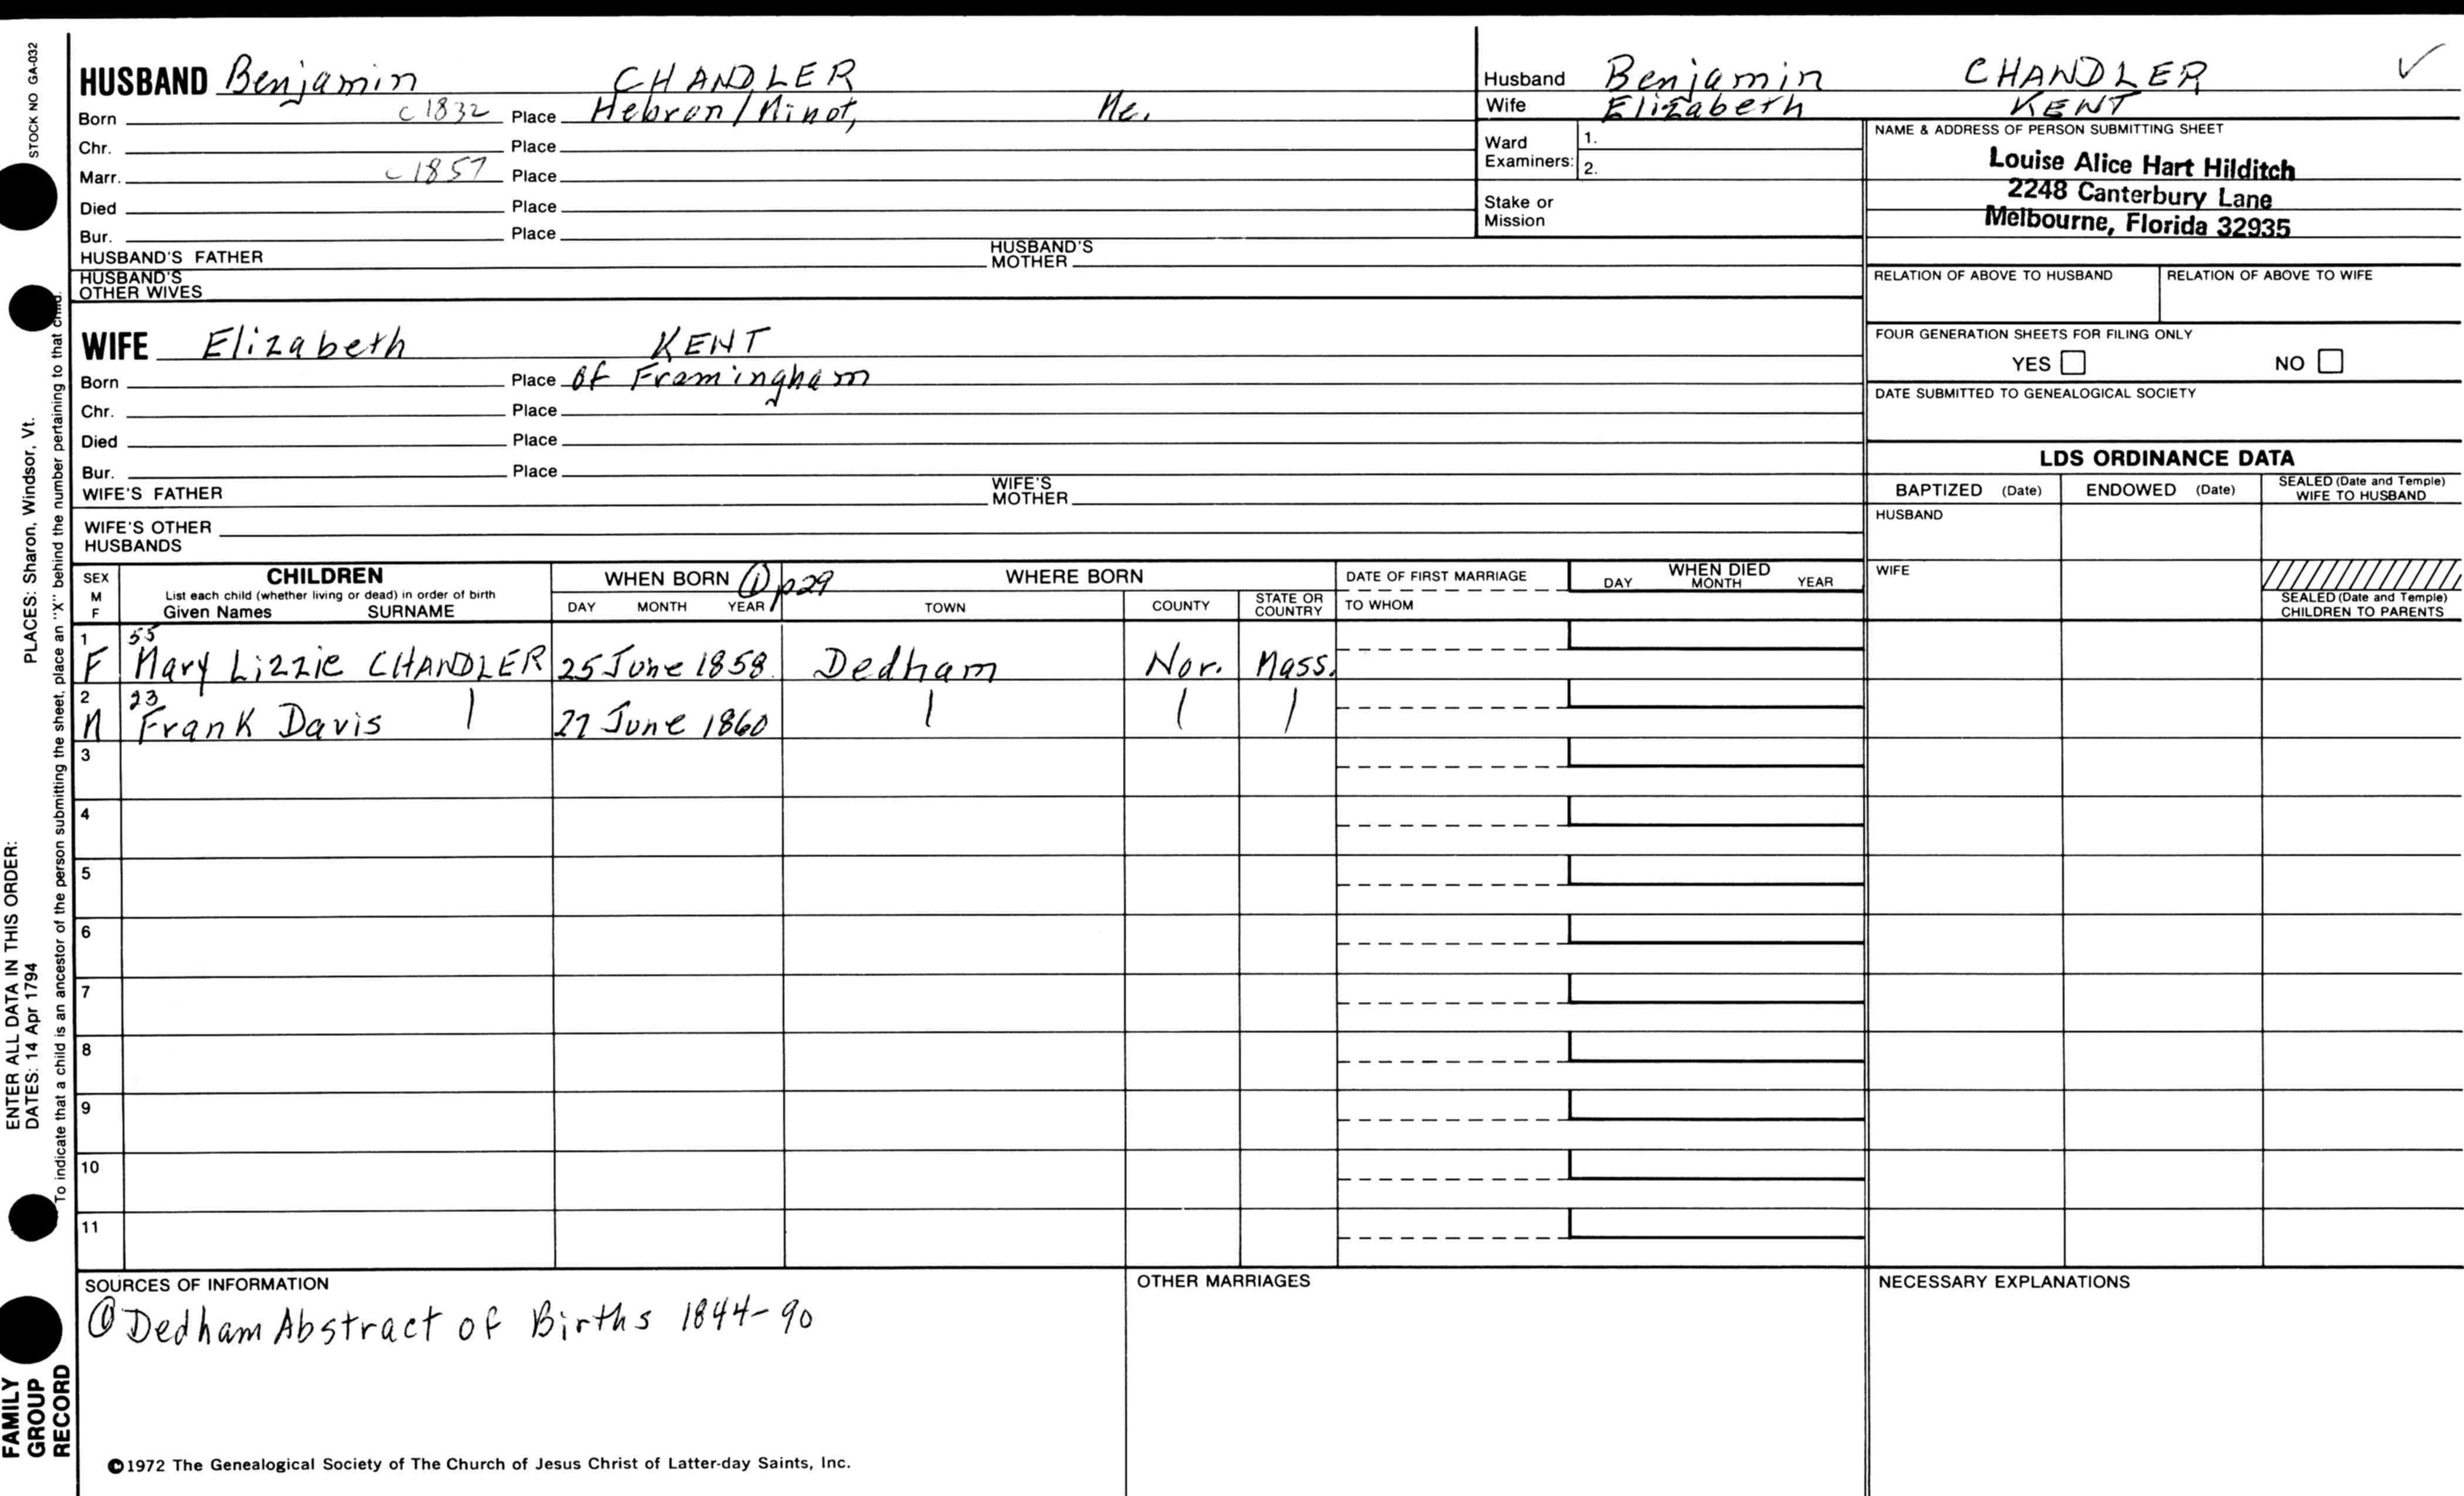 STOCK NO GA-032
HUSBAND Benjamin CHANDLER
Born c 1832 Place Hebron/Minot, Me.
Chr. Place
Marr. c 1857 Place
Died Place
Bur. Place
HUSBAND'S FATHER HUSBAND'S MOTHER
HUSBAND'S OTHER WIVES
WIFE Elizabeth KENT
Born Place of Framingham
Chr. Place
Died Place
Bur. Place
WIFE'S FATHER WIFE'S MOTHER
WIFE'S OTHER HUSBANDS
Husband Benjamin CHANDLER ✓
Wife Elizabeth KENT
Ward Examiners: 1.
2.
Stake or Mission
NAME & ADDRESS OF PERSON SUBMITTING SHEET
Louise Alice Hart Hilditch
2248 Canterbury Lane
Melbourne, Florida 32935
RELATION OF ABOVE TO HUSBAND RELATION OF ABOVE TO WIFE
FOUR GENERATION SHEETS FOR FILING ONLY
YES NO
DATE SUBMITTED TO GENEALOGICAL SOCIETY
LDS ORDINANCE DATA
BAPTIZED (Date) ENDOWED (Date) SEALED (Date and Temple) WIFE TO HUSBAND
HUSBAND
WIFE
SEALED (Date and Temple) CHILDREN TO PARENTS
SEX M F
CHILDREN
List each child (whether living or dead) in order of birth
Given Names SURNAME
WHEN BORN ① p29
DAY MONTH YEAR
WHERE BORN
TOWN COUNTY STATE OR COUNTRY
DATE OF FIRST MARRIAGE
TO WHOM
WHEN DIED
DAY MONTH YEAR
1 55
F Mary Lizzie CHANDLER 25 June 1858 Dedham Nor. Mass.
2 23
M Frank Davis | 27 June 1860 | | |
3
4
5
6
7
8
9
10
11
SOURCES OF INFORMATION
① Dedham Abstract of Births 1844-90
OTHER MARRIAGES
NECESSARY EXPLANATIONS
©1972 The Genealogical Society of The Church of Jesus Christ of Latter-day Saints, Inc.
ENTER ALL DATA IN THIS ORDER:
DATES: 14 Apr 1794
PLACES: Sharon, Windsor, Vt.
To indicate that a child is an ancestor of the person submitting the sheet, place an "X" behind the number pertaining to that child.
FAMILY
GROUP
RECORD